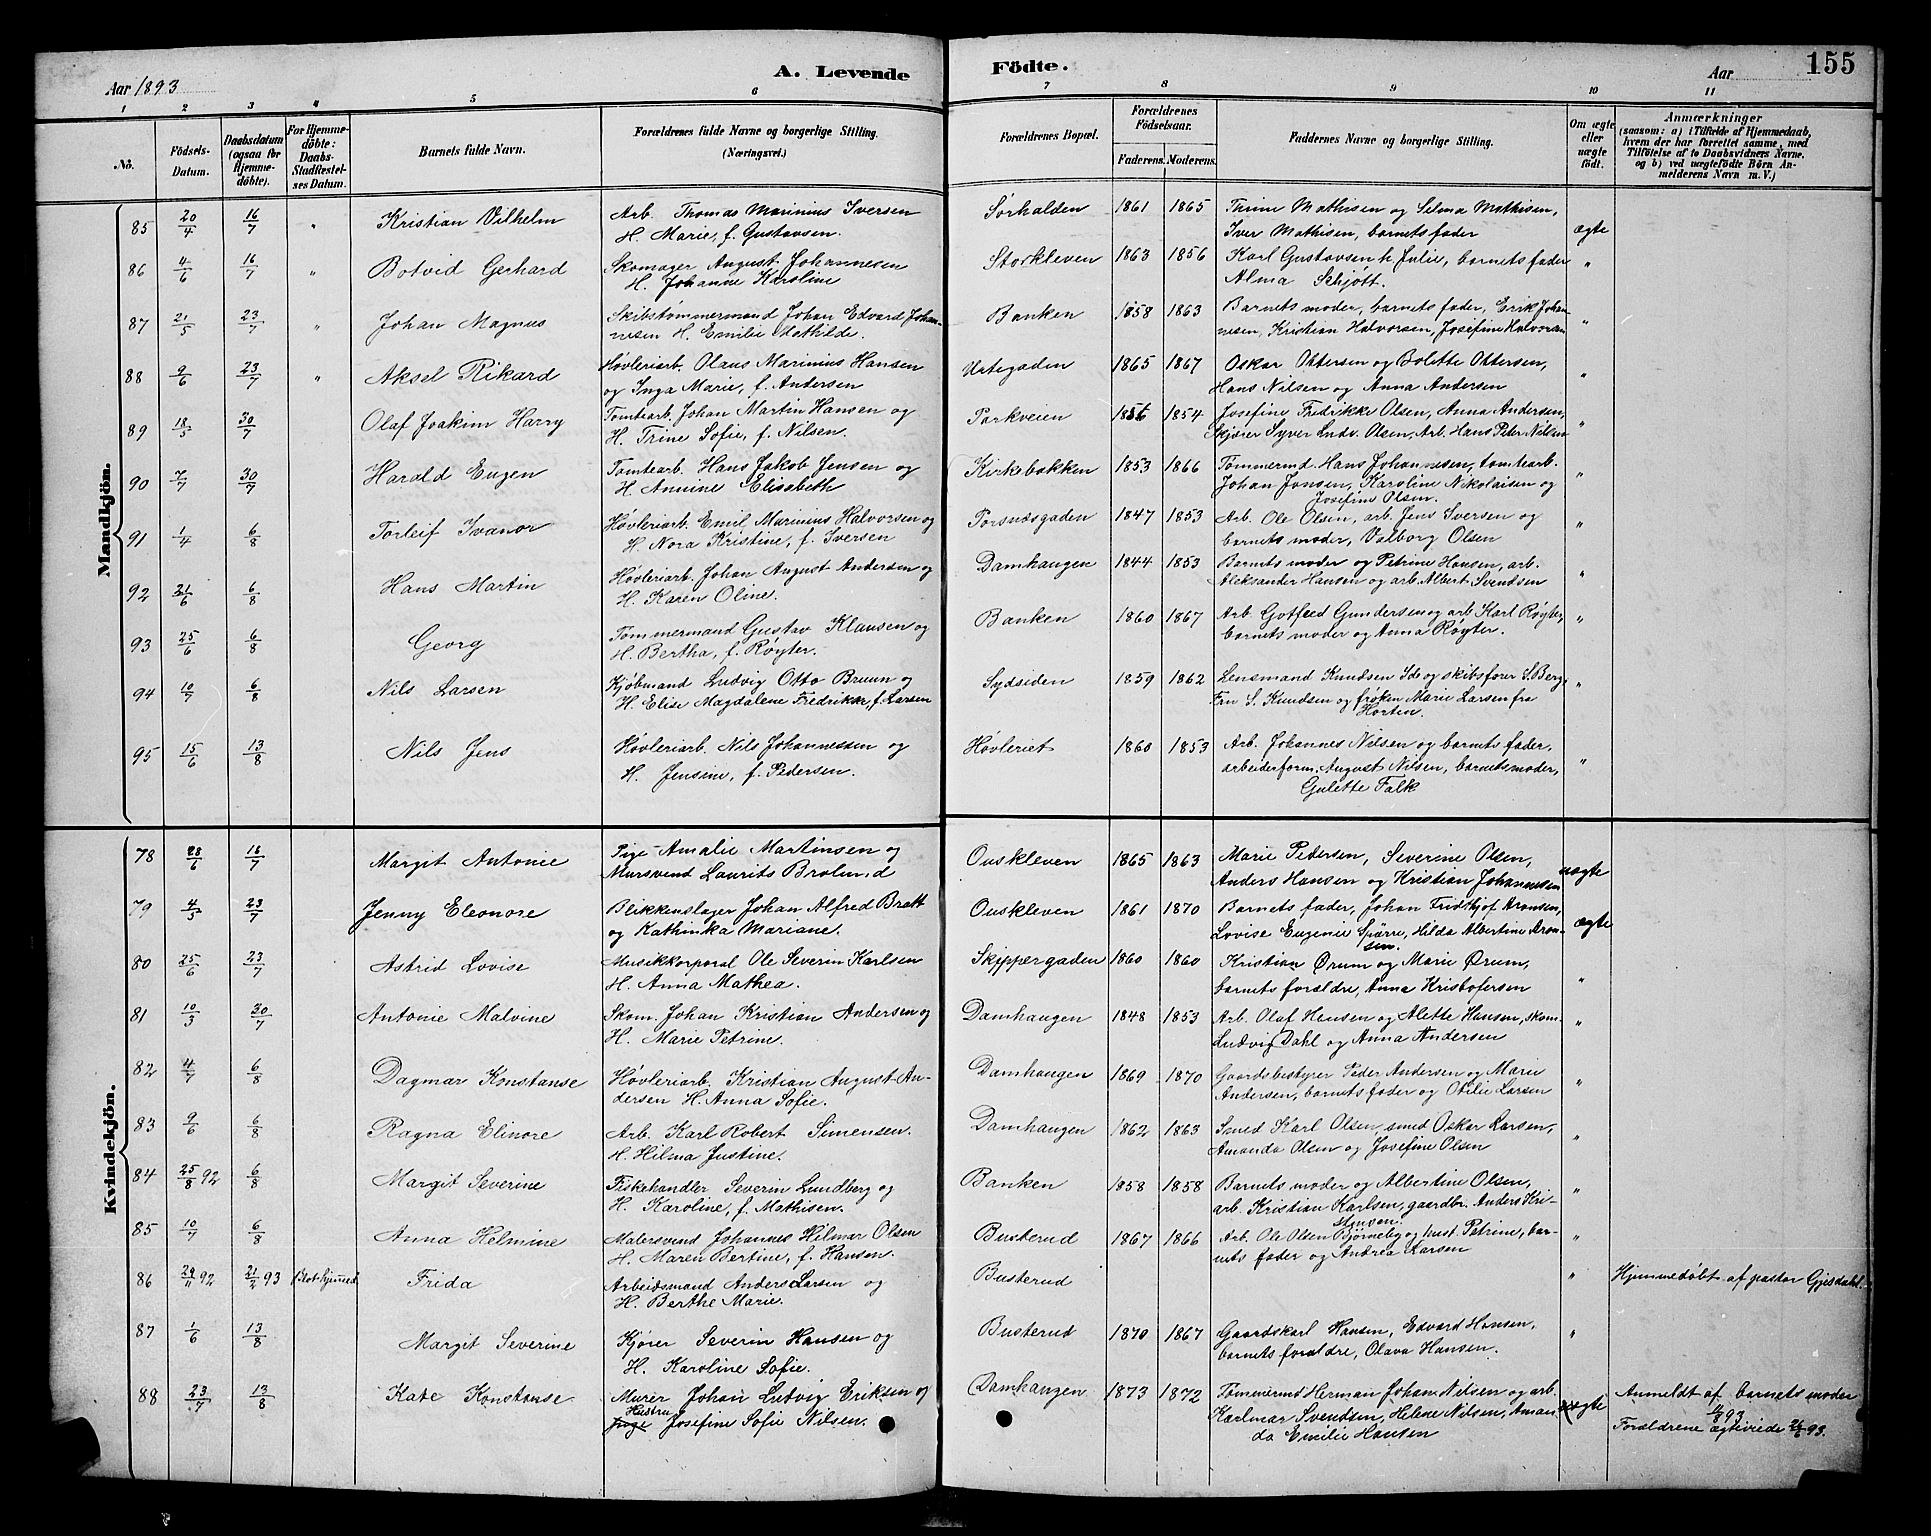 Aar 1893
A. Levende
Födte.
Aar
155
1 2 3 4 5 6 7 8 9 10 11
No.
Födsels-
Datum.
Daabsdatum
(ogsaa for
Hjemme-
döbte).
For Hjemme-
döbte:
Daabs-
Stadfæstel-
ses Datum.
Barnets fulde Navn.
Forældrenes fulde Navne og borgerlige Stilling.
(Næringsvei.)
Forældrenes Bopæl.
Forældrenes
Födselsaar.
Faderens. Moderens.
Faddernes Navne og borgerlige Stilling.
Om ægte
eller
uægte
födt.
Anmærkninger
(saasom: a) i Tilfælde af Hjemmedaab,
hvem der har forrettet samme, med
Tilföielse af to Daabsvidners Navne,
og b) ved uægtefödte Börn An-
melderens Navn m. V.)
Mandkjön.
85 20/4 16/7 " Kristian Vilhelm Arb. Thomas Marinius Iversen Sørhalden 1861 1865 Trine Mathisen og Silma Mathisen,
H. Marie, f. Gustavsen. Iver Mathisen, barnets fader ægte
86 4/6 16/7 " Botvid Gerhard Skomager August Johannesen Storkleven 1863 1856 Karl Gustavsen h. Julie, barnets fader "
H. Johanne Karoline Alma Schjøtt.
87 21/5 23/7 " Johan Magnus Skibstømmermand Johan Edvard Johan- Banken 1858 1863 Barnets moder, barnets fader, Erik Johan-
nesen H. Emilie Mathilde. nesen, Kristian Halvorsen, Josefine Halvorsen "
88 9/6 23/7 " Aksel Rikard Høvleriarb. Olaus Marinius Hansen Urtegaden 1865 1867 Oskar Ottersen og Bolette Ottersen,
og Inga Marie, f. Andersen Hans Nilsen og Anna Andersen "
89 18/5 30/7 Olaf Joakim Harry Tomtearb. Johan Martin Hansen og Parkveien 1856 1854 Josefine Fredrikke Olsen, Anna Andersen,
H. Trine Sofie, f. Nilsen. Skjører Syver Ludv. Olsen, Arb. Hans Peter Nilsen "
90 7/7 30/7 Harald Eugen Tomtearb. Hans Jakob Jensen og Kirkebakken 1853 1866 Tømmermd. Hans Johannesen, tomtearb.
H. Annine Elisabeth Johan Jensen, Karoline Nikolaisen og "
Josefine Olsen.
91 1/4 6/8 Torleif Ivanor Høvleriarb. Emil Marinius Halvorsen og Porsnesgaden 1847 1853 Arb. Ole Olsen, arb. Jens Iversen og
H. Nora Kristine, f. Iversen barnets moder, Valborg Olsen "
92 21/6 6/8 Hans Martin Høvleriarb. Johan August Andersen og Damhaugen 1844 1853 Barnets moder og Petrine Hansen, arb.
H. Karen Oline. Aleksander Hansen og arb. Albert Svendsen "
93 25/6 6/8 Georg Tømmermand Gustav Klausen og Banken 1860 1867 Arb. Gotfred Gundersen og arb. Karl Røyter, "
H. Bertha, f. Røyter. barnets moder og Anna Røyter.
94 10/7 6/8 Nils Larsen Kjøbmand Ludvig Otto Bruun og Sydsiden 1859 1862 Lensmand Knudsen Ide og skibsfører S. Berg, "
H. Elise Magdalene Fredrikke, f. Larsen Fru S. Knudsen og frøken Marie Larsen fra
Horten.
95 15/6 13/8 Nils Jens Høvleriarb. Nils Johannessen og Høvleriet 1860 1853 Arb. Johannes Nilsen og barnets fader,
H. Jensine, f. Pedersen. arbeiderform. August Nilsen, barnets moder, "
Gulette Falk
Kvindekjön.
78 28/6 16/7 Margit Antonie Pige Amalie Martinsen og Ouskleven 1865 1863 Marie Pedersen, Severine Olsen,
Mursvend Laurits Brolund Anders Hansen og Kristian Johannesen uægte
79 4/5 23/7 Jenny Eleonore Blikkenslager Johan Alfred Bratt Ouskleven 1861 1870 Barnets fader, Johan Fridthjof Aronsen,
og Kathinka Mariane. Lovise Eugenie Spärre, Hilda Albertine Aron- ægte
sen.
80 25/6 23/7 Astrid Lovise Musikkorporal Ole Severin Karlsen Skippergaden 1860 1860 Kristian Ørum og Marie Ørum,
H. Anna Mathea. barnets forældre, Anna Kristofersen "
81 10/3 30/7 Antonie Malvine Skom. Johan Kristian Andersen og Damhaugen 1848 1853 Arb. Olaf Hansen og Alette Hansen, skom. "
H. Marie Petrine. Ludvig Dahl og Anna Andersen
82 4/7 6/8 Dagmar Konstanse Høvleriarb. Kristian August An- Damhaugen 1869 1870 Gaardsbestyrer Peder Andersen og Marie
dersen H. Anna Sofie. Andersen, barnets fader og Otilie Larsen "
83 9/6 6/8 Ragna Elinore Arb. Karl Robert Simensen. Damhaugen 1862 1863 Smed Karl Olsen, smed Oskar Larsen,
H. Hilma Justine. Amanda Olsen og Josefine Olsen "
84 25/8 92 6/8 Margit Severine Fiskehandler Severin Lundberg og Banken 1858 1858 Barnets moder og Albertine Olsen,
H. Karoline, f. Mathisen. arb. Kristian Karlsen, gaardbr. Anders Kri- "
stensen.
85 10/7 6/8 Anna Helmine Malersvend Johannes Hilmar Olsen Busterud 1867 1866 Arb. Ole Olsen Bjørneby og hust. Petrine, bar-
H. Maren Bertine, f. Hansen. nets fader og Andrea Larsen "
86 29/11 92 21/2 93 Blot hjemmed. Frida Arbeidsmand Anders Larsen og Busterud " Hjemmedøbt af pastor Gjesdahl.
H. Berthe Marie.
87 1/6 13/8 Margit Severine Kjører Severin Hansen og Busterud 1870 1867 Gaardskarl Hansen, Edvard Hansen, "
H. Karoline Sofie. barnets forældre, Olava Hansen.
88 23/7 13/8 Kate Konstanse Murer Johan Ludvig Eriksen og Damhaugen 1873 1872 Tømmermd Herman Johan Nilsen og arb. Anmeldt af barnets moder
Hustru
Pige Josefine Sofie Nilsen. Karlmar Svendsen, Helene Nilsen, Aman- uægte
da Emilie Hansen Forældrene ægteviede 26/6 93.